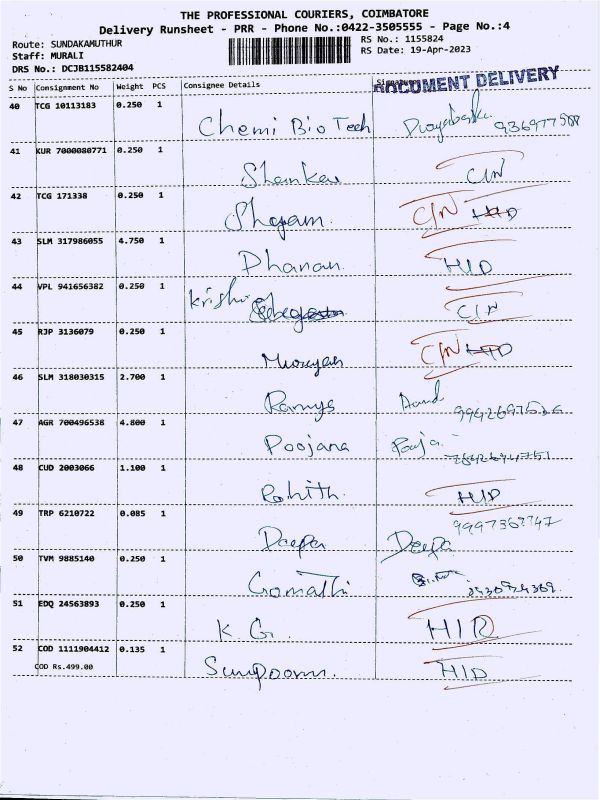 THE PROFESSIONAL COURIERS, COIMBATORE
Delivery Runsheet - PRR - Phone No.:0422-3505555 - Page No.:4
Route: SUNDAKAMUTHUR RS No.: 1155824
Staff: MURALI RS Date: 19-Apr-2023
DRS No.: DCJB115582404
DOCUMENT DELIVERY
S No Consignment No Weight PCS Consignee Details Signature
40 TCG 10113183 0.250 1
Chemi Bio Tech
41 KUR 7000080771 0.250 1
Shankar C/N
42 TCG 171338 0.250 1
Shyam C/N
43 SLM 317986055 4.750 1
Dhanan H/D
44 VPL 941656382 0.250 1
Krishna C/N
45 RJP 3136079 0.250 1
Murugan C/N
46 SLM 318030315 2.700 1
Ramya Anand
47 AGR 700496538 4.800 1
Poojana Pooja
48 CUD 2003066 1.100 1
Rohith H/D
49 TRP 6210722 0.085 1
Deepa Deepa
50 TVM 9885140 0.250 1
Gomathi
51 EDQ 24563893 0.250 1
K. G. H/R
52 COD 1111904412 0.135 1
COD Rs.499.00
H/D